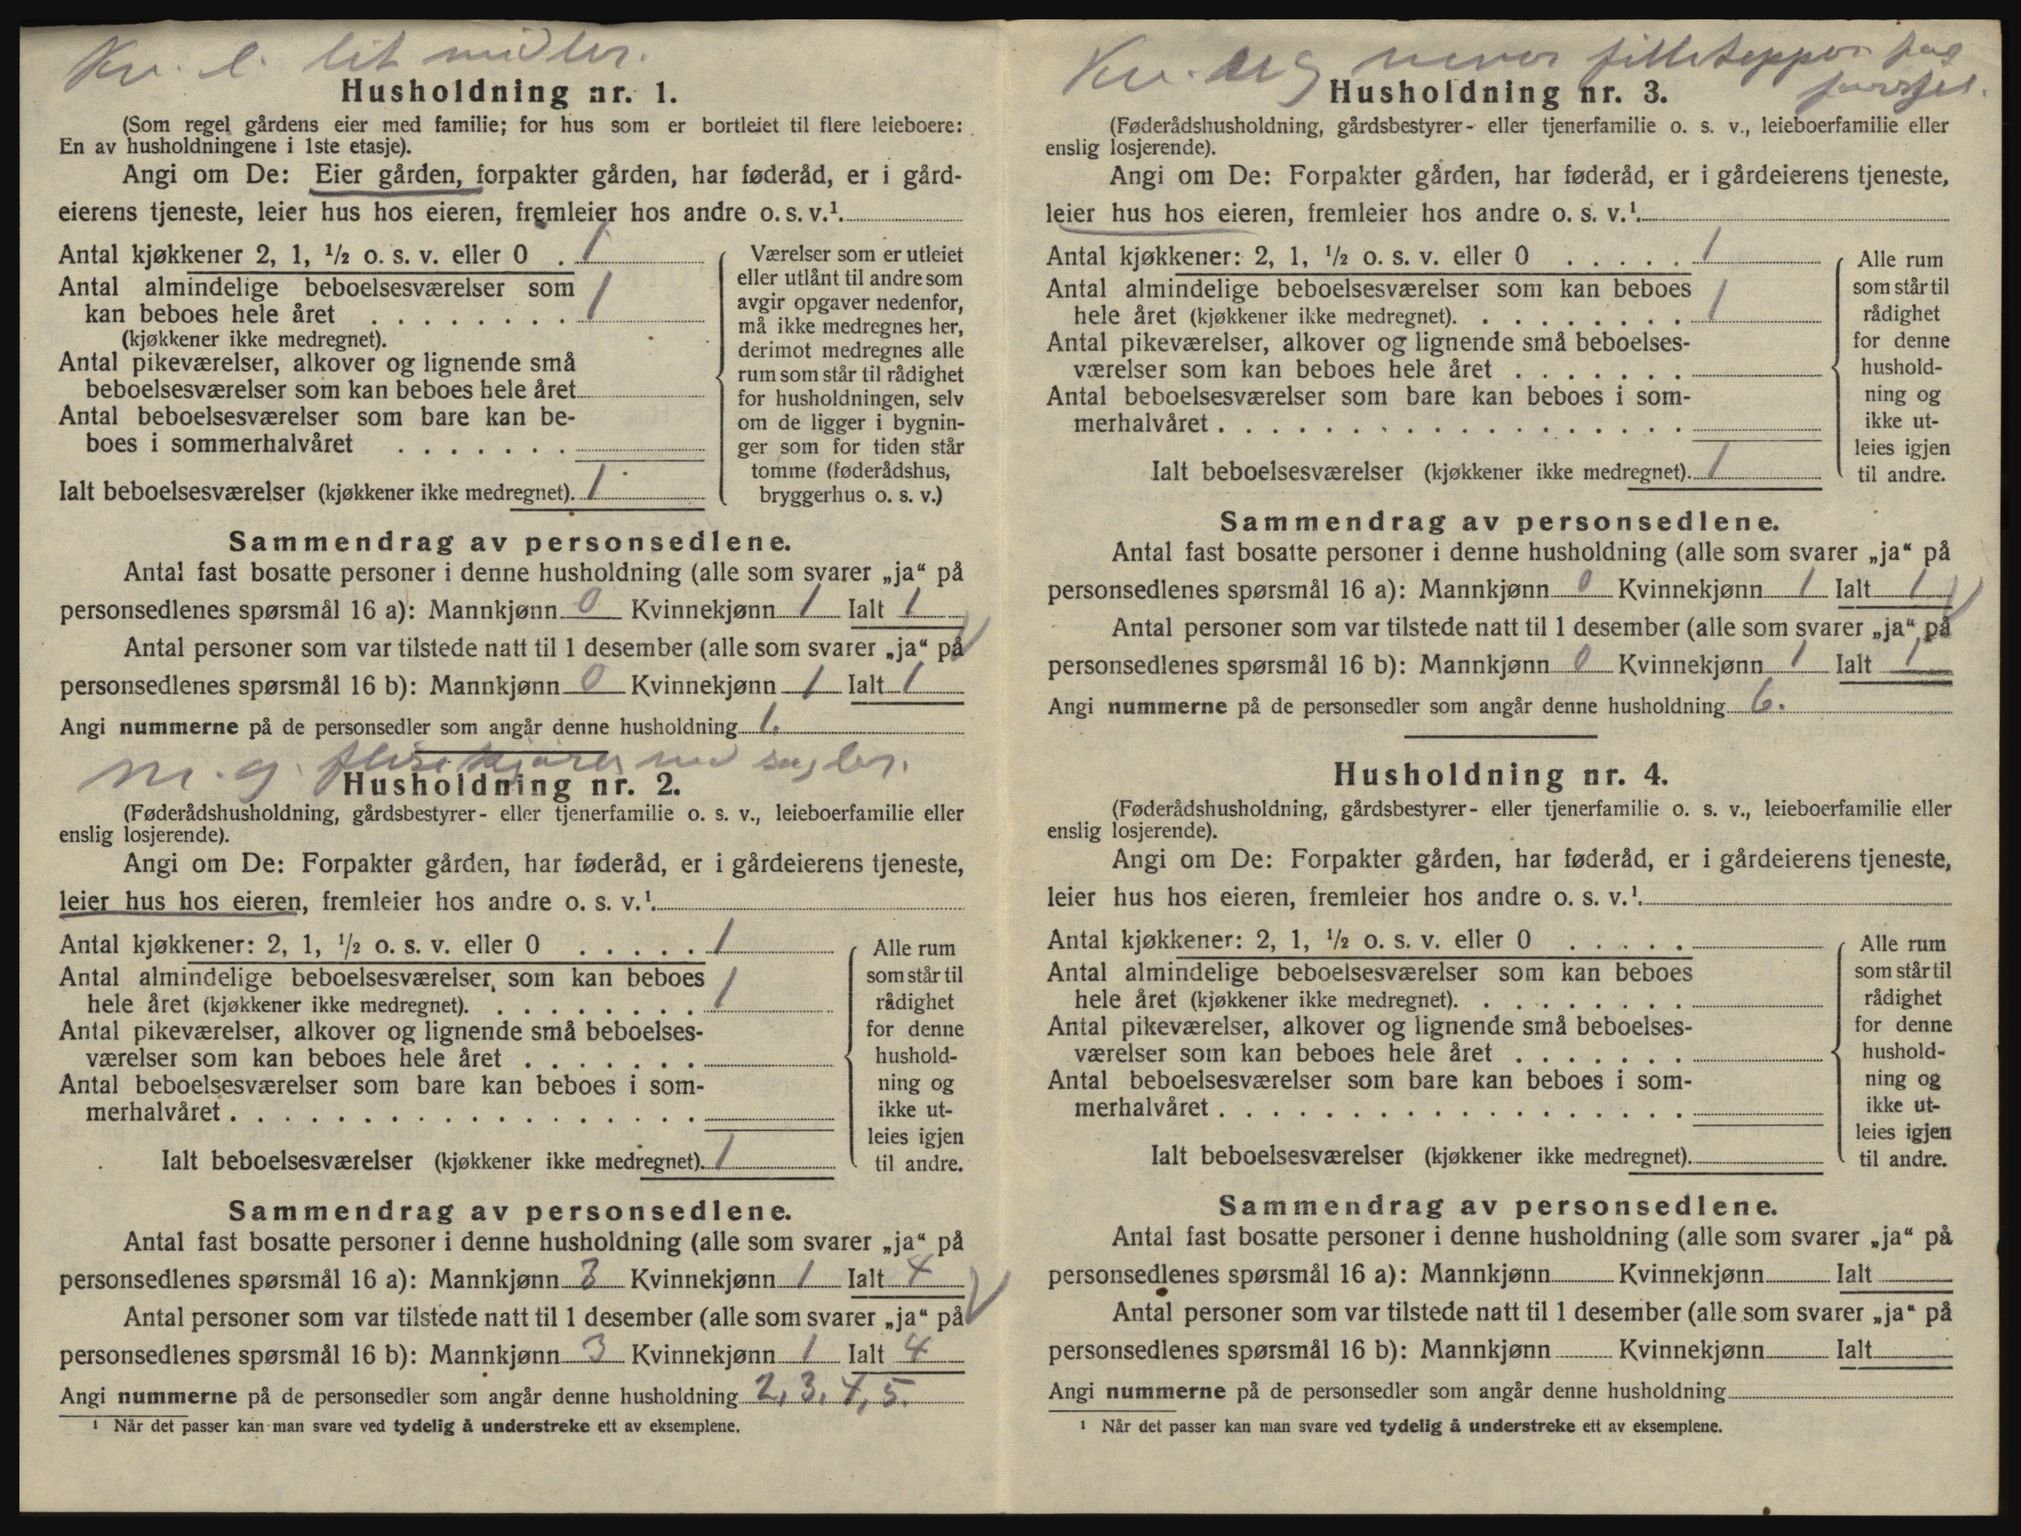 Kv. e. litt midler.
Husholdning nr. 1.
(Som regel gårdens eier med familie; for hus som er bortleiet til flere leieboere:
En av husholdningene i 1ste etasje).
Angi om De: Eier gården, forpakter gården, har føderåd, er i gård-
eierens tjeneste, leier hus hos eieren, fremleier hos andre o. s. v.¹.
Antal kjøkkener 2, 1, ½ o. s. v. eller 0 . 1
Antal almindelige beboelsesværelser som
kan beboes hele året . . . . . . . . 1
(kjøkkener ikke medregnet).
Antal pikeværelser, alkover og lignende små
beboelsesværelser som kan beboes hele året
Antal beboelsesværelser som bare kan be-
boes i sommerhalvåret . . . . . . .
Ialt beboelsesværelser (kjøkkener ikke medregnet). 1
Værelser som er utleiet
eller utlånt til andre som
avgir opgaver nedenfor,
må ikke medregnes her,
derimot medregnes alle
rum som står til rådighet
for husholdningen, selv
om de ligger i bygnin-
ger som for tiden står
tomme (føderådshus,
bryggerhus o. s. v.)
Sammendrag av personsedlene.
Antal fast bosatte personer i denne husholdning (alle som svarer „ja“ på
personsedlenes spørsmål 16 a): Mannkjønn 0 Kvinnekjønn 1 Ialt 1
Antal personer som var tilstede natt til 1 desember (alle som svarer „ja“ på
personsedlenes spørsmål 16 b): Mannkjønn 0 Kvinnekjønn 1 Ialt 1
Angi nummerne på de personsedler som angår denne husholdning 1.
m. g. flisekjører ved sagbr.
Husholdning nr. 2.
(Føderådshusholdning, gårdsbestyrer- eller tjenerfamilie o. s. v., leieboerfamilie eller
enslig losjerende).
Angi om De: Forpakter gården, har føderåd, er i gårdeierens tjeneste,
leier hus hos eieren, fremleier hos andre o. s. v.¹.
Antal kjøkkener: 2, 1, ½ o. s. v. eller 0 . . . . . 1
Antal almindelige beboelsesværelser som kan beboes
hele året (kjøkkener ikke medregnet). . . . . . . . . 1
Antal pikeværelser, alkover og lignende små beboelses-
værelser som kan beboes hele året . . . . . . .
Antal beboelsesværelser som bare kan beboes i som-
merhalvåret . . . . . . . . . . . . . . . . . .
Ialt beboelsesværelser (kjøkkener ikke medregnet). 1
Alle rum
som står til
rådighet
for denne
hushold-
ning og
ikke ut-
leies igjen
til andre.
Sammendrag av personsedlene.
Antal fast bosatte personer i denne husholdning (alle som svarer „ja“ på
personsedlenes spørsmål 16 a): Mannkjønn 3 Kvinnekjønn 1 Ialt 4
Antal personer som var tilstede natt til 1 desember (alle som svarer „ja“ på
personsedlenes spørsmål 16 b): Mannkjønn 3 Kvinnekjønn 1 Ialt 4
Angi nummerne på de personsedler som angår denne husholdning 2, 3, 4, 5.
¹ Når det passer kan man svare ved tydelig å understreke ett av eksemplene.
Kv. ug vever filletepper
Husholdning nr. 3.
(Føderådshusholdning, gårdsbestyrer- eller tjenerfamilie o. s. v., leieboerfamilie eller
enslig losjerende).
Angi om De: Forpakter gården, har føderåd, er i gårdeierens tjeneste,
leier hus hos eieren, fremleier hos andre o. s. v.¹.
Antal kjøkkener: 2, 1, ½ o. s. v. eller 0 . . . . . 1
Antal almindelige beboelsesværelser som kan beboes
hele året (kjøkkener ikke medregnet). . . . . . . . . 1
Antal pikeværelser, alkover og lignende små beboelses-
værelser som kan beboes hele året . . . . . . .
Antal beboelsesværelser som bare kan beboes i som-
merhalvåret . . . . . . . . . . . . . . . . . .
Ialt beboelsesværelser (kjøkkener ikke medregnet). 1
Alle rum
som står til
rådighet
for denne
hushold-
ning og
ikke ut-
leies igjen
til andre.
Sammendrag av personsedlene.
Antal fast bosatte personer i denne husholdning (alle som svarer „ja“ på
personsedlenes spørsmål 16 a): Mannkjønn 0 Kvinnekjønn 1 Ialt 1
Antal personer som var tilstede natt til 1 desember (alle som svarer „ja“ på
personsedlenes spørsmål 16 b): Mannkjønn 0 Kvinnekjønn 1 Ialt 1
Angi nummerne på de personsedler som angår denne husholdning 6.
Husholdning nr. 4.
(Føderådshusholdning, gårdsbestyrer- eller tjenerfamilie o. s. v., leieboerfamilie eller
enslig losjerende).
Angi om De: Forpakter gården, har føderåd, er i gårdeierens tjeneste,
leier hus hos eieren, fremleier hos andre o. s. v.¹.
Antal kjøkkener: 2, 1, ½ o. s. v. eller 0 . . . . .
Antal almindelige beboelsesværelser som kan beboes
hele året (kjøkkener ikke medregnet). . . . . . . . .
Antal pikeværelser, alkover og lignende små beboelses-
værelser som kan beboes hele året . . . . . . .
Antal beboelsesværelser som bare kan beboes i som-
merhalvåret . . . . . . . . . . . . . . . . . .
Ialt beboelsesværelser (kjøkkener ikke medregnet).
Alle rum
som står til
rådighet
for denne
hushold-
ning og
ikke ut-
leies igjen
til andre.
Sammendrag av personsedlene.
Antal fast bosatte personer i denne husholdning (alle som svarer „ja“ på
personsedlenes spørsmål 16 a): Mannkjønn Kvinnekjønn Ialt
Antal personer som var tilstede natt til 1 desember (alle som svarer „ja“ på
personsedlenes spørsmål 16 b): Mannkjønn Kvinnekjønn Ialt
Angi nummerne på de personsedler som angår denne husholdning
¹ Når det passer kan man svare ved tydelig å understreke ett av eksemplene.